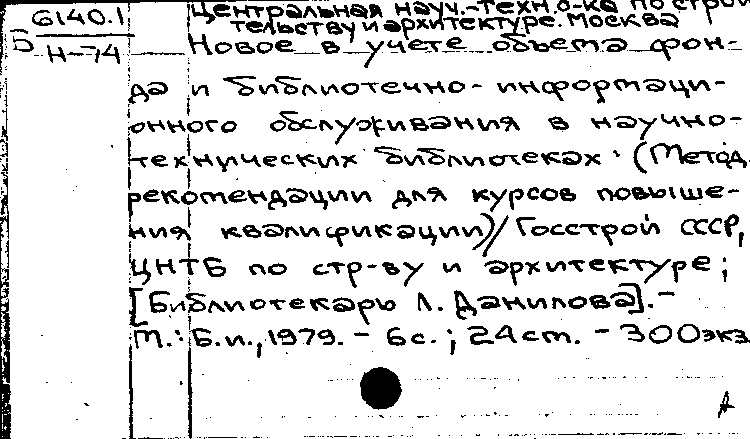 6140.1
Б
Н-74
Центральная науч.-техн.б-ка по строи
тельству и архитектуре. Москва
Новое в учете объема фон-
да и библиотечно-информаци-
онного обслуживания в научно-
технических библиотеках. (Метод.
рекомендации для курсов повыше-
ния квалификации)/Госстрой СССР,
ЦНТБ по стр-ву и архитектуре;
[Библиотекарь Л. Данилова].-
М.: Б.и., 1979. - 6с.; 24см. - 300экз
А